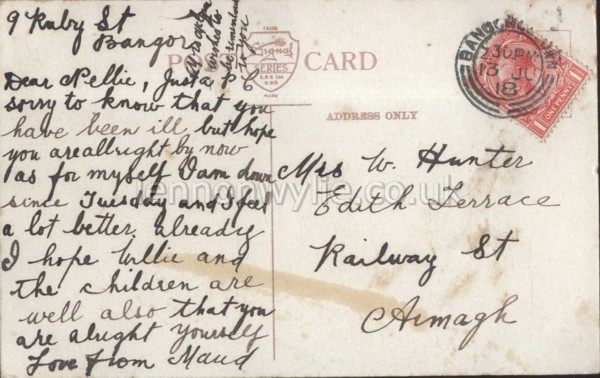 9 Ruby St
Bangor
Dear Nellie, Just a P C
sorry to know that you
have been ill but hope
you are allright by now
as for myself I am down
since Tuesday and I feel
a lot better. already
I hope Willie and
the children are
well also that you
are alright yourself
Love from Maud
wishes to
be remembered
to you
TRADE
Signal
SERIES
MARK
POST CARD
ADDRESS ONLY
BANGOR
30 PM
13 JU
18
1 ONE PENNY 1
Mrs W. Hunter
Edith Terrace
Railway St
Armagh
lennonwylie.co.uk